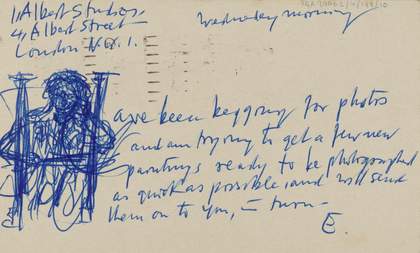 11 Albert Studios,
4, Albert Street
London N.W.1.
Wednesday morning
ave been begging for photos
and am trying to get a few new
paintings ready to be photographed
as quick as possible, and will send
them on to you, in turn -
E.